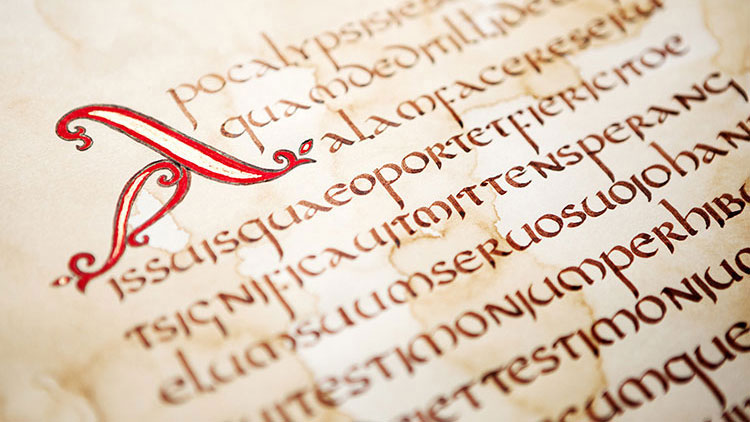 Apocalypsisie
quamdeditillide
alamfacereseru
issuisquaeoportetfiericitoe
tsignificauitmittensperang
elumsuumseruosuojohan
uitestimoniumperhib
iettestimoniu
cumque